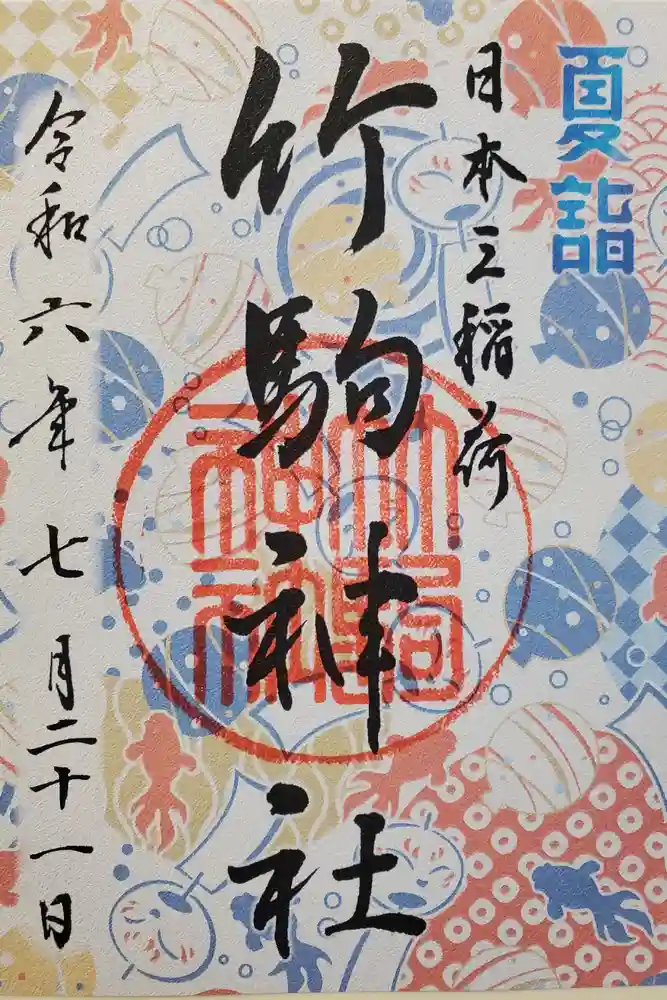 夏詣
日本三稲荷
竹駒神社
竹駒神社
令和六年七月二十一日